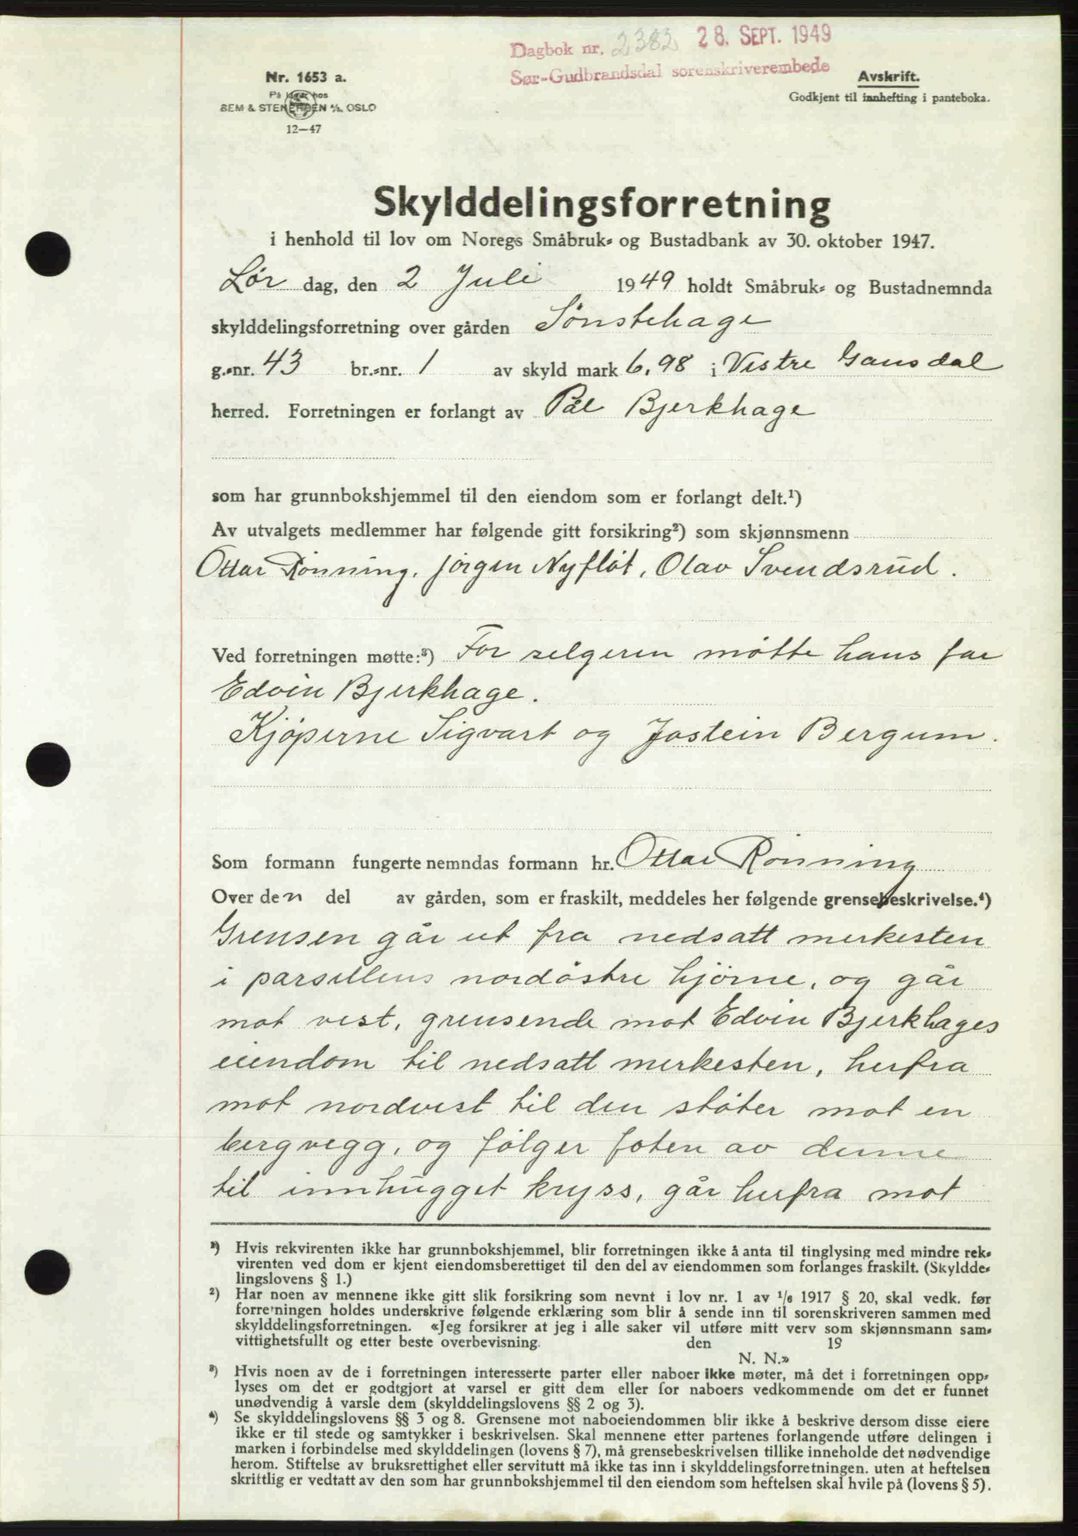 Dagbok nr. 2382 28. SEPT. 1949
Sør-Gudbrandsdal sorenskriverembede
Nr. 1653 a.
På lager hos
SEM & STENERSEN A/S. OSLO
12—47
Avskrift.
Godkjent til innhefting i panteboka.
Skylddelingsforretning
i henhold til lov om Noregs Småbruk- og Bustadbank av 30. oktober 1947.
Lør dag, den 2 Juli 1949 holdt Småbruk- og Bustadnemnda
skylddelingsforretning over gården Sønstehage
g.-nr. 43 br.-nr. 1 av skyld mark 6,98 i Vestre Gausdal
herred. Forretningen er forlangt av Pål Bjerkhage
som har grunnbokshjemmel til den eiendom som er forlangt delt.¹)
Av utvalgets medlemmer har følgende gitt forsikring²) som skjønnsmenn
Ottar Rønning, Jørgen Nyfløt, Olav Svendsrud.
Ved forretningen møtte:³) For selgeren møtte hans far
Edvin Bjerkhage.
Kjøperne Sigvart og Jostein Bergum.
Som formann fungerte nemndas formann hr. Ottar Rønning
Over den del av gården, som er fraskilt, meddeles her følgende grensebeskrivelse.⁴)
Grensen går ut fra nedsatt merkesten
i parsellens nordøstre hjørne, og går
mot vest, grensende mot Edvin Bjerkhages
eiendom til nedsatt merkesten, herfra
mot nordvest til den støter mot en
bergvegg, og følger foten av denne
til innhugget kryss, går herfra mot
¹) Hvis rekvirenten ikke har grunnbokshjemmel, blir forretningen ikke å anta til tinglysing med mindre rek-
virenten ved dom er kjent eiendomsberettiget til den del av eiendommen som forlanges fraskilt. (Skyldde-
lingslovens § 1.)
²) Har noen av mennene ikke gitt slik forsikring som nevnt i lov nr. 1 av ¹/₆ 1917 § 20, skal vedk. før
forretningen holdes underskrive følgende erklæring som blir å sende inn til sorenskriveren sammen med
skylddelingsforretningen. «Jeg forsikrer at jeg i alle saker vil utføre mitt verv som skjønnsmann sam-
vittighetsfullt og etter beste overbevisning. den 19
N. N.»
³) Hvis noen av de i forretningen interesserte parter eller naboer ikke møter, må det i forretningen opp-
lyses om det er godtgjort at varsel er gitt dem eller for naboers vedkommende om det er funnet
unødvendig å varsle dem (skylddelingslovens §§ 2 og 3).
⁴) Se skylddelingslovens §§ 3 og 8. Grensene mot naboeiendommen blir ikke å beskrive dersom disse eiere
ikke er til stede og samtykker i beskrivelsen. Skal mennene etter partenes forlangende utføre delingen i
marken i forbindelse med skylddelingen (lovens § 7), må grensebeskrivelsen tillike inneholde det nødvendige
herom. Stiftelse av bruksrettighet eller servitutt må ikke tas inn i skylddelingsforretningen. uten at heftelsen
skriftlig er vedtatt av den som har grunnbokshjemmel til den eiendom som heftelsen skal hvile på (lovens § 5).